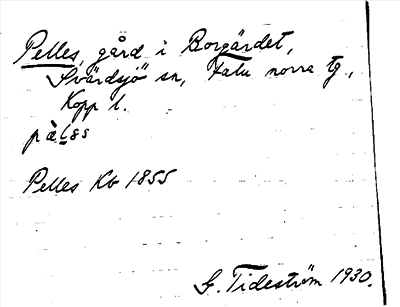 Pelles, gård i Borgärdet,
Svärdsjö sn, Falu norra tg,
Kopp l.
Pelles Kb 1855
G. Tideström 1930.